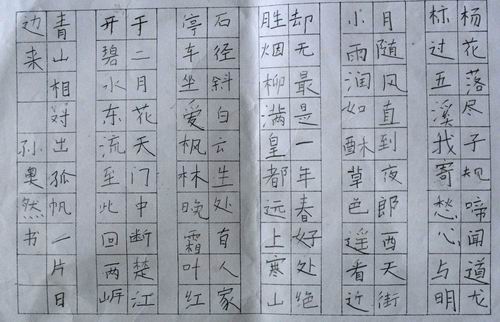 杨花落尽子规啼闻道龙
标过五溪我寄愁心与明
月随风直到夜郎西天街
小雨润如酥草色遥看近
却无最是一年春好处绝
胜烟柳满皇都远上寒山
石径斜白云生处有人家
停车坐爱枫林晚霜叶红
于二月花天门中断楚江
开碧水东流至此回两岸
青山相对出孤帆一片日
边来
孙奥然书